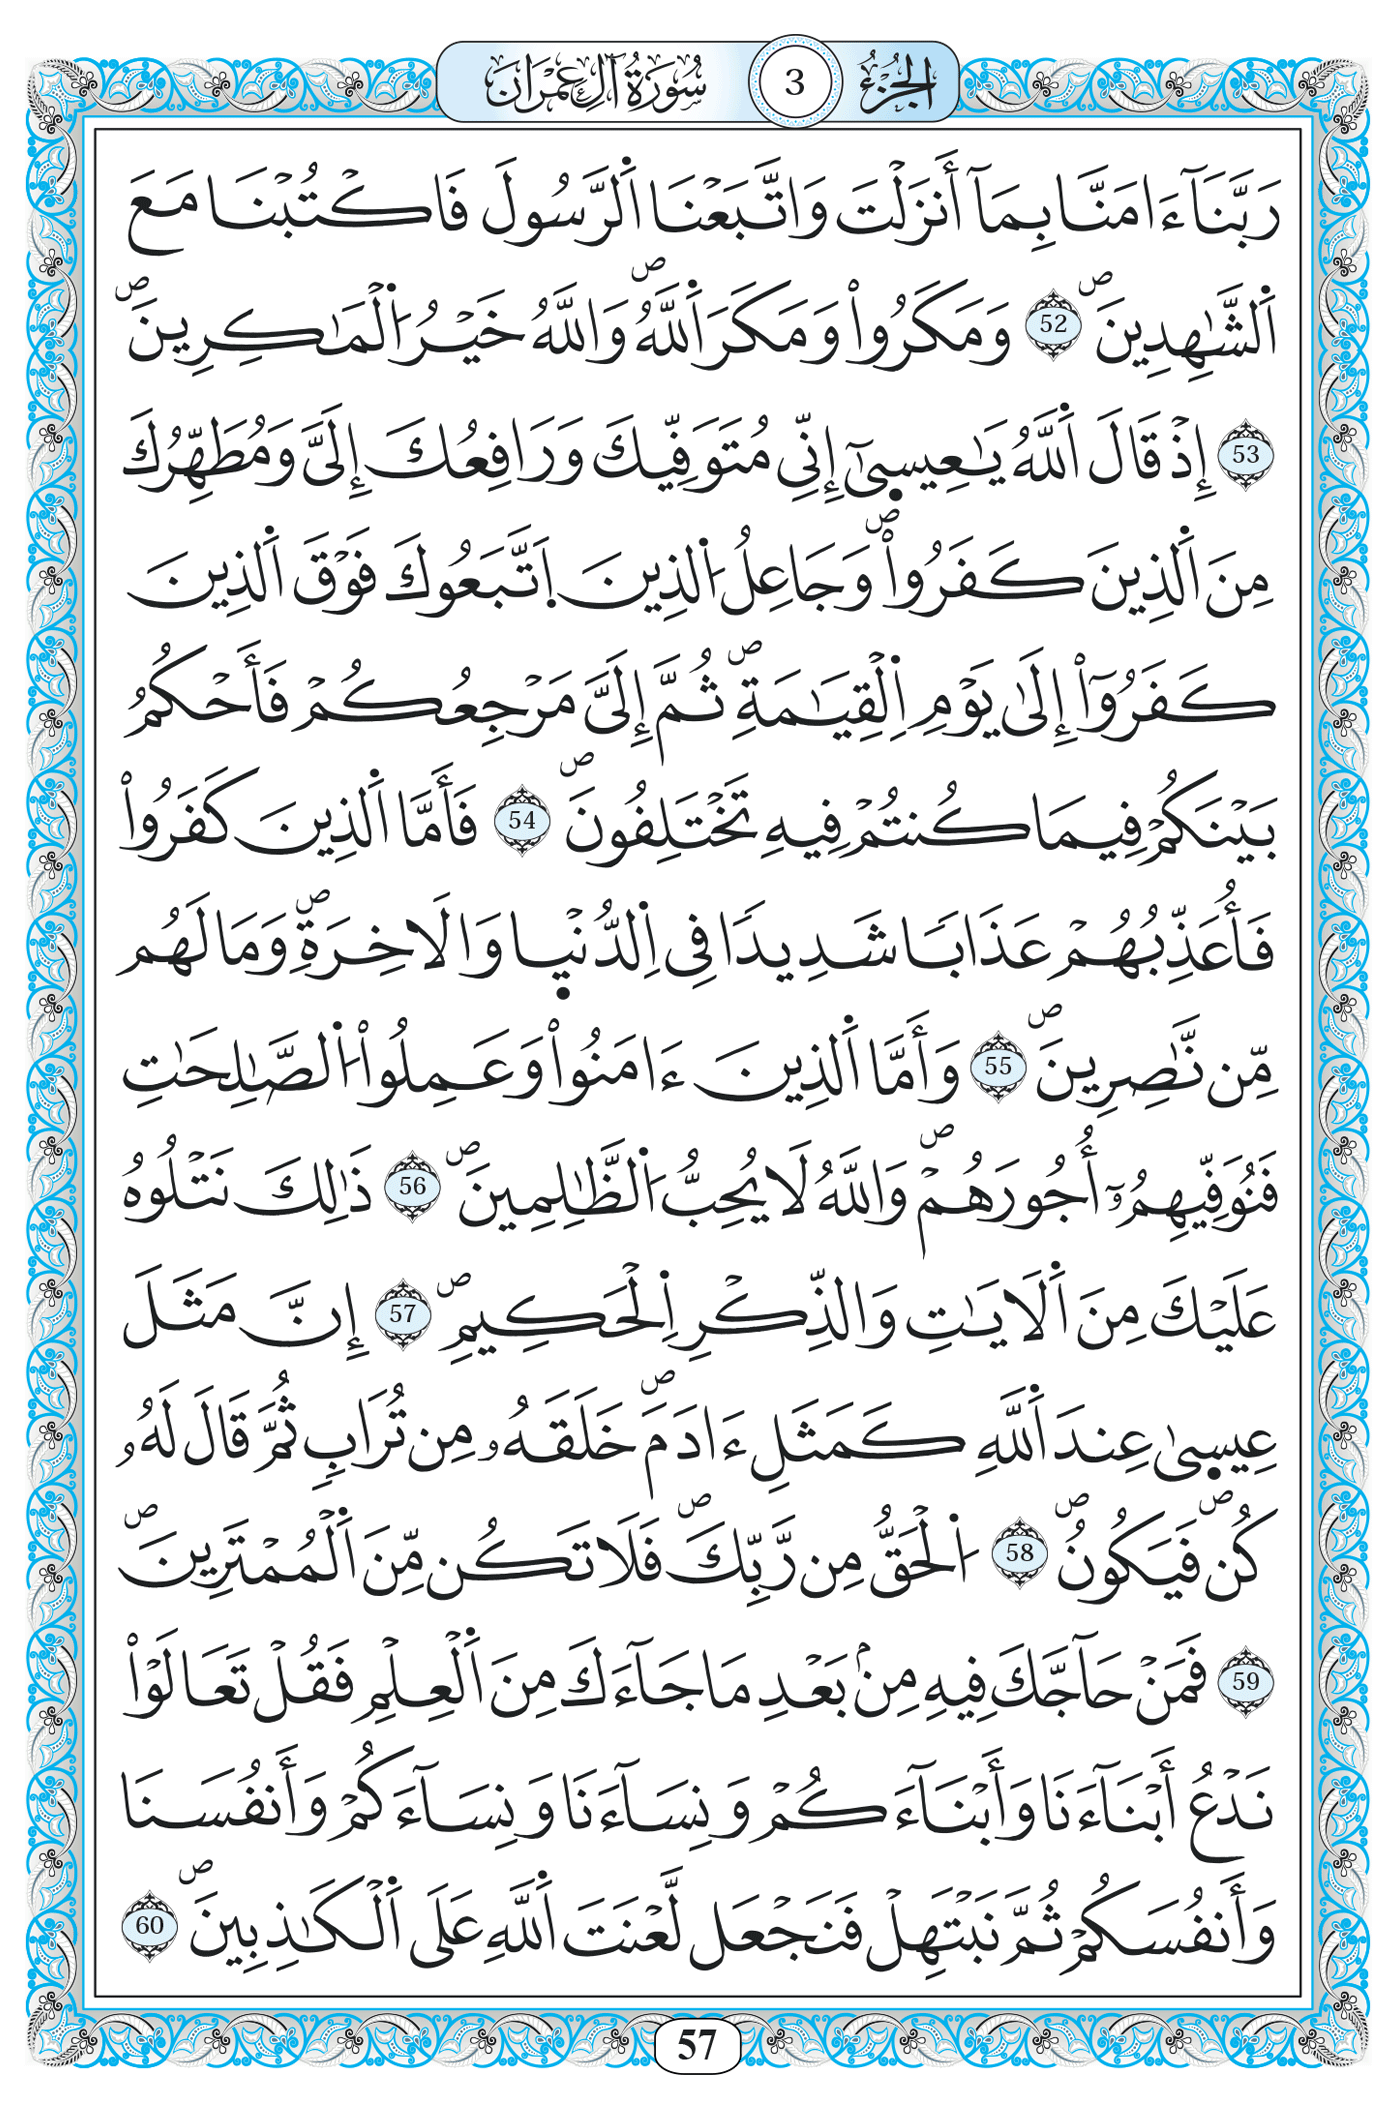 الجزء 3 سورة آل عمران
رَبَّنَآ ءَامَنَّا بِمَآ أَنزَلْتَ وَاتَّبَعْنَا اَلرَّسُولَ فَاكْتُبْنَا مَعَ
اَلشَّٰهِدِينَۖ 52 وَمَكَرُواْ وَمَكَرَ اَللَّهُۖ وَاللَّهُ خَيْرُ اُلْمَٰكِرِينَۖ
53 إِذْ قَالَ اَللَّهُ يَٰعِيسىٰٓ إِنِّي مُتَوَفِّيكَ وَرَافِعُكَ إِلَىَّ وَمُطَهِّرُكَ
مِنَ اَلذِينَ كَفَرُواْۖ وَجَاعِلُ اُلذِينَ اَتَّبَعُوكَ فَوْقَ اَلذِينَ
كَفَرُوٓاْ إِلَىٰ يَوْمِ اِلْقِيَٰمَةِۖ ثُمَّ إِلَىَّ مَرْجِعُكُمْ فَأَحْكُمُ
بَيْنَكُمْ فِيمَا كُنتُمْ فِيهِ تَخْتَلِفُونَۖ 54 فَأَمَّا اَلذِينَ كَفَرُواْ
فَأُعَذِّبُهُمْ عَذَابًا شَدِيدًا فِى اِلدُّنْيا وَالَاخِرَةِۖ وَمَا لَهُم
مِّن نَّٰصِرِينَۖ 55 وَأَمَّا اَلذِينَ ءَامَنُواْ وَعَمِلُواْ اُلصَّٰلِحَٰتِ
فَنُوَفِّيهِمُۥٓ أُجُورَهُمْۖ وَاللَّهُ لَا يُحِبُّ اُلظَّٰلِمِينَۖ 56 ذَٰلِكَ نَتْلُوهُ
عَلَيْكَ مِنَ اَلَايَٰتِ وَالذِّكْرِ اِلْحَكِيمِۖ 57 إِنَّ مَثَلَ
عِيسىٰ عِندَ اَللَّهِ كَمَثَلِ ءَادَمَۖ خَلَقَهُۥ مِن تُرَابٍ ثُمَّ قَالَ لَهُۥ
كُنۖ فَيَكُونُۖ 58 اُلْحَقُّ مِن رَّبِّكَۖ فَلَا تَكُن مِّنَ اَلْمُمْتَرِينَۖ
59 فَمَنْ حَآجَّكَ فِيهِ مِنۢ بَعْدِ مَا جَآءَكَ مِنَ اَلْعِلْمِ فَقُلْ تَعَالَوْاْ
نَدْعُ أَبْنَآءَنَا وَأَبْنَآءَكُمْ وَنِسَآءَنَا وَنِسَآءَكُمْ وَأَنفُسَنَا
وَأَنفُسَكُمْ ثُمَّ نَبْتَهِلْ فَنَجْعَل لَّعْنَتَ اَللَّهِ عَلَى اَلْكَٰذِبِينَۖ 60
57